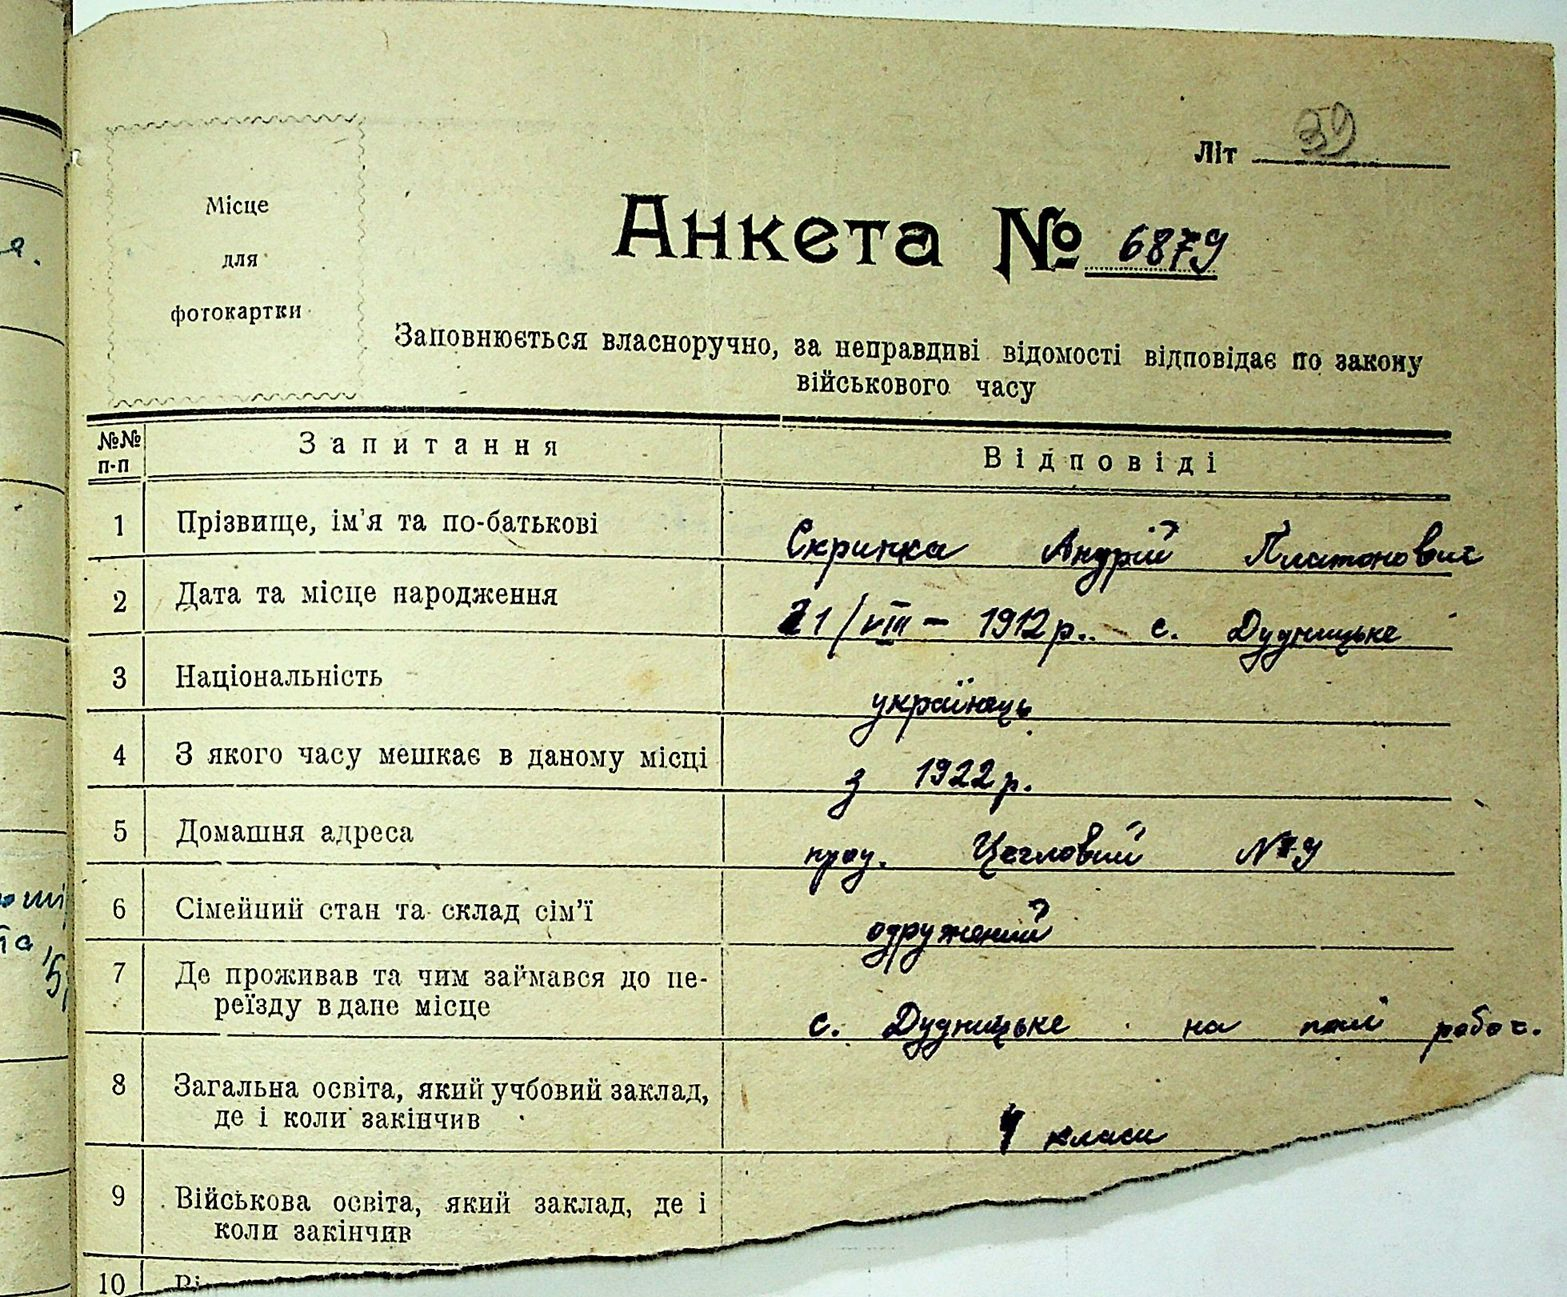 Літ 39
Місце
для
фотокартки
Анкета № 6879
Заповнюється власноручно, за неправдиві відомості відповідає по закону
військового часу
№№ п-п Запитання Відповіді
1 Прізвище, ім'я та по-батькові Скрипка Андрій Платонович
2 Дата та місце народження 21/VIII – 1912 р.. с. Дудницьке
3 Національність українець
4 З якого часу мешкає в даному місці з 1922 р.
5 Домашня адреса пров. Цегловий № 9
6 Сімейний стан та склад сім'ї одружений
7 Де проживав та чим займався до пе-
реїзду в дане місце с. Дудницьке на полі робоч.
8 Загальна освіта, який учбовий заклад,
де і коли закінчив 4 класи
9 Військова освіта, який заклад, де і
коли закінчив
10